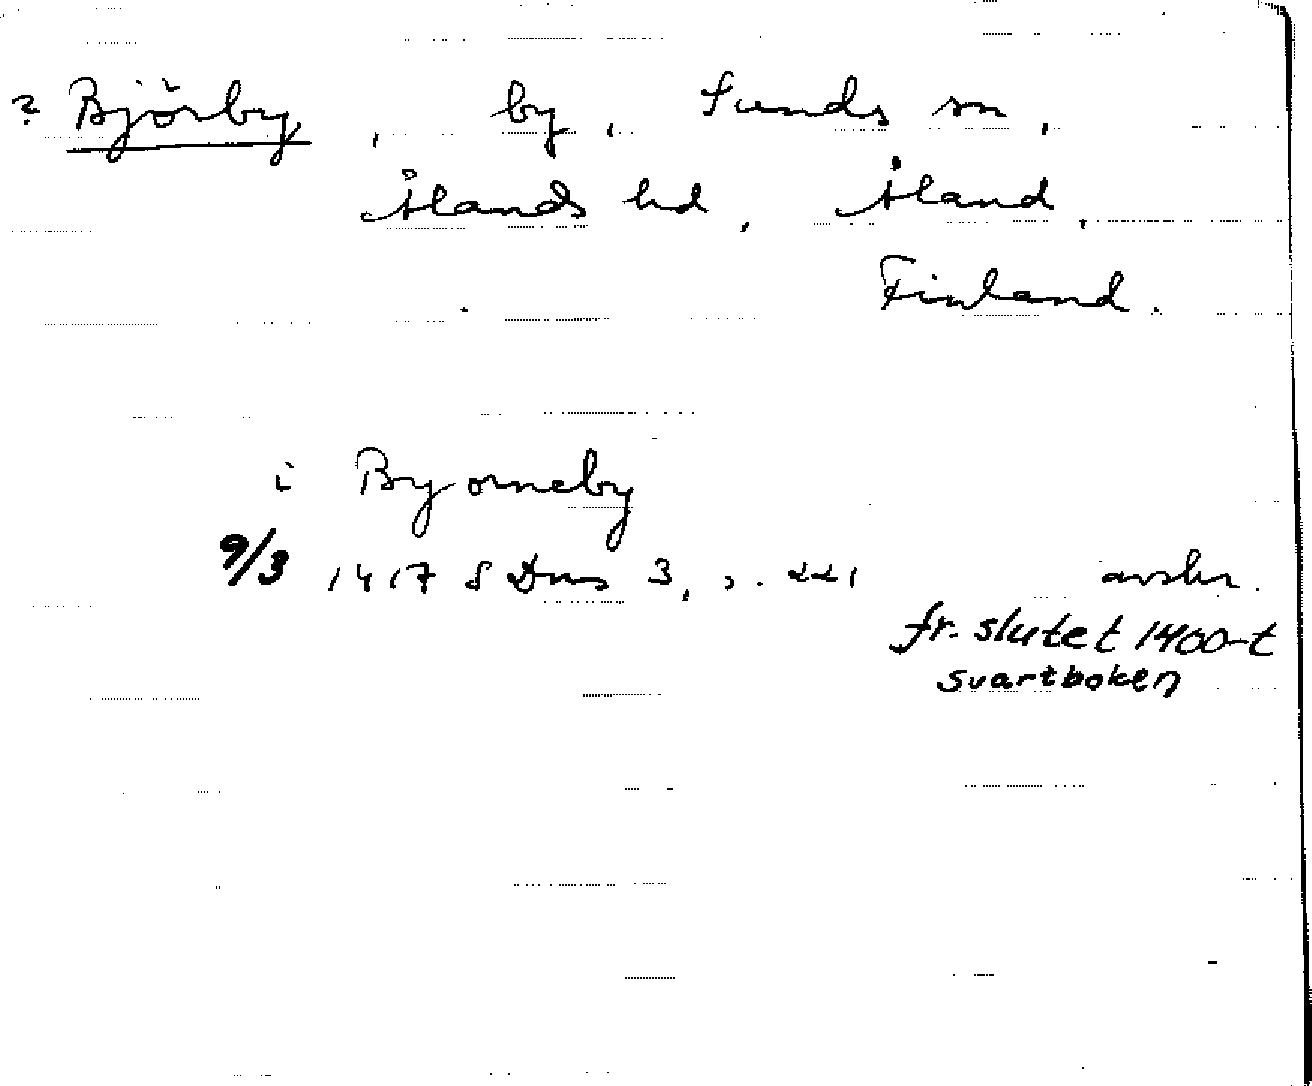 ? Björby, , by, Sunds sn,
Ålands hd, Åland,
Finland.
i Byorneby
9/3 1417 S Dns 3, s. 221 avskr.
fr. slutet 1400-t
svartboken